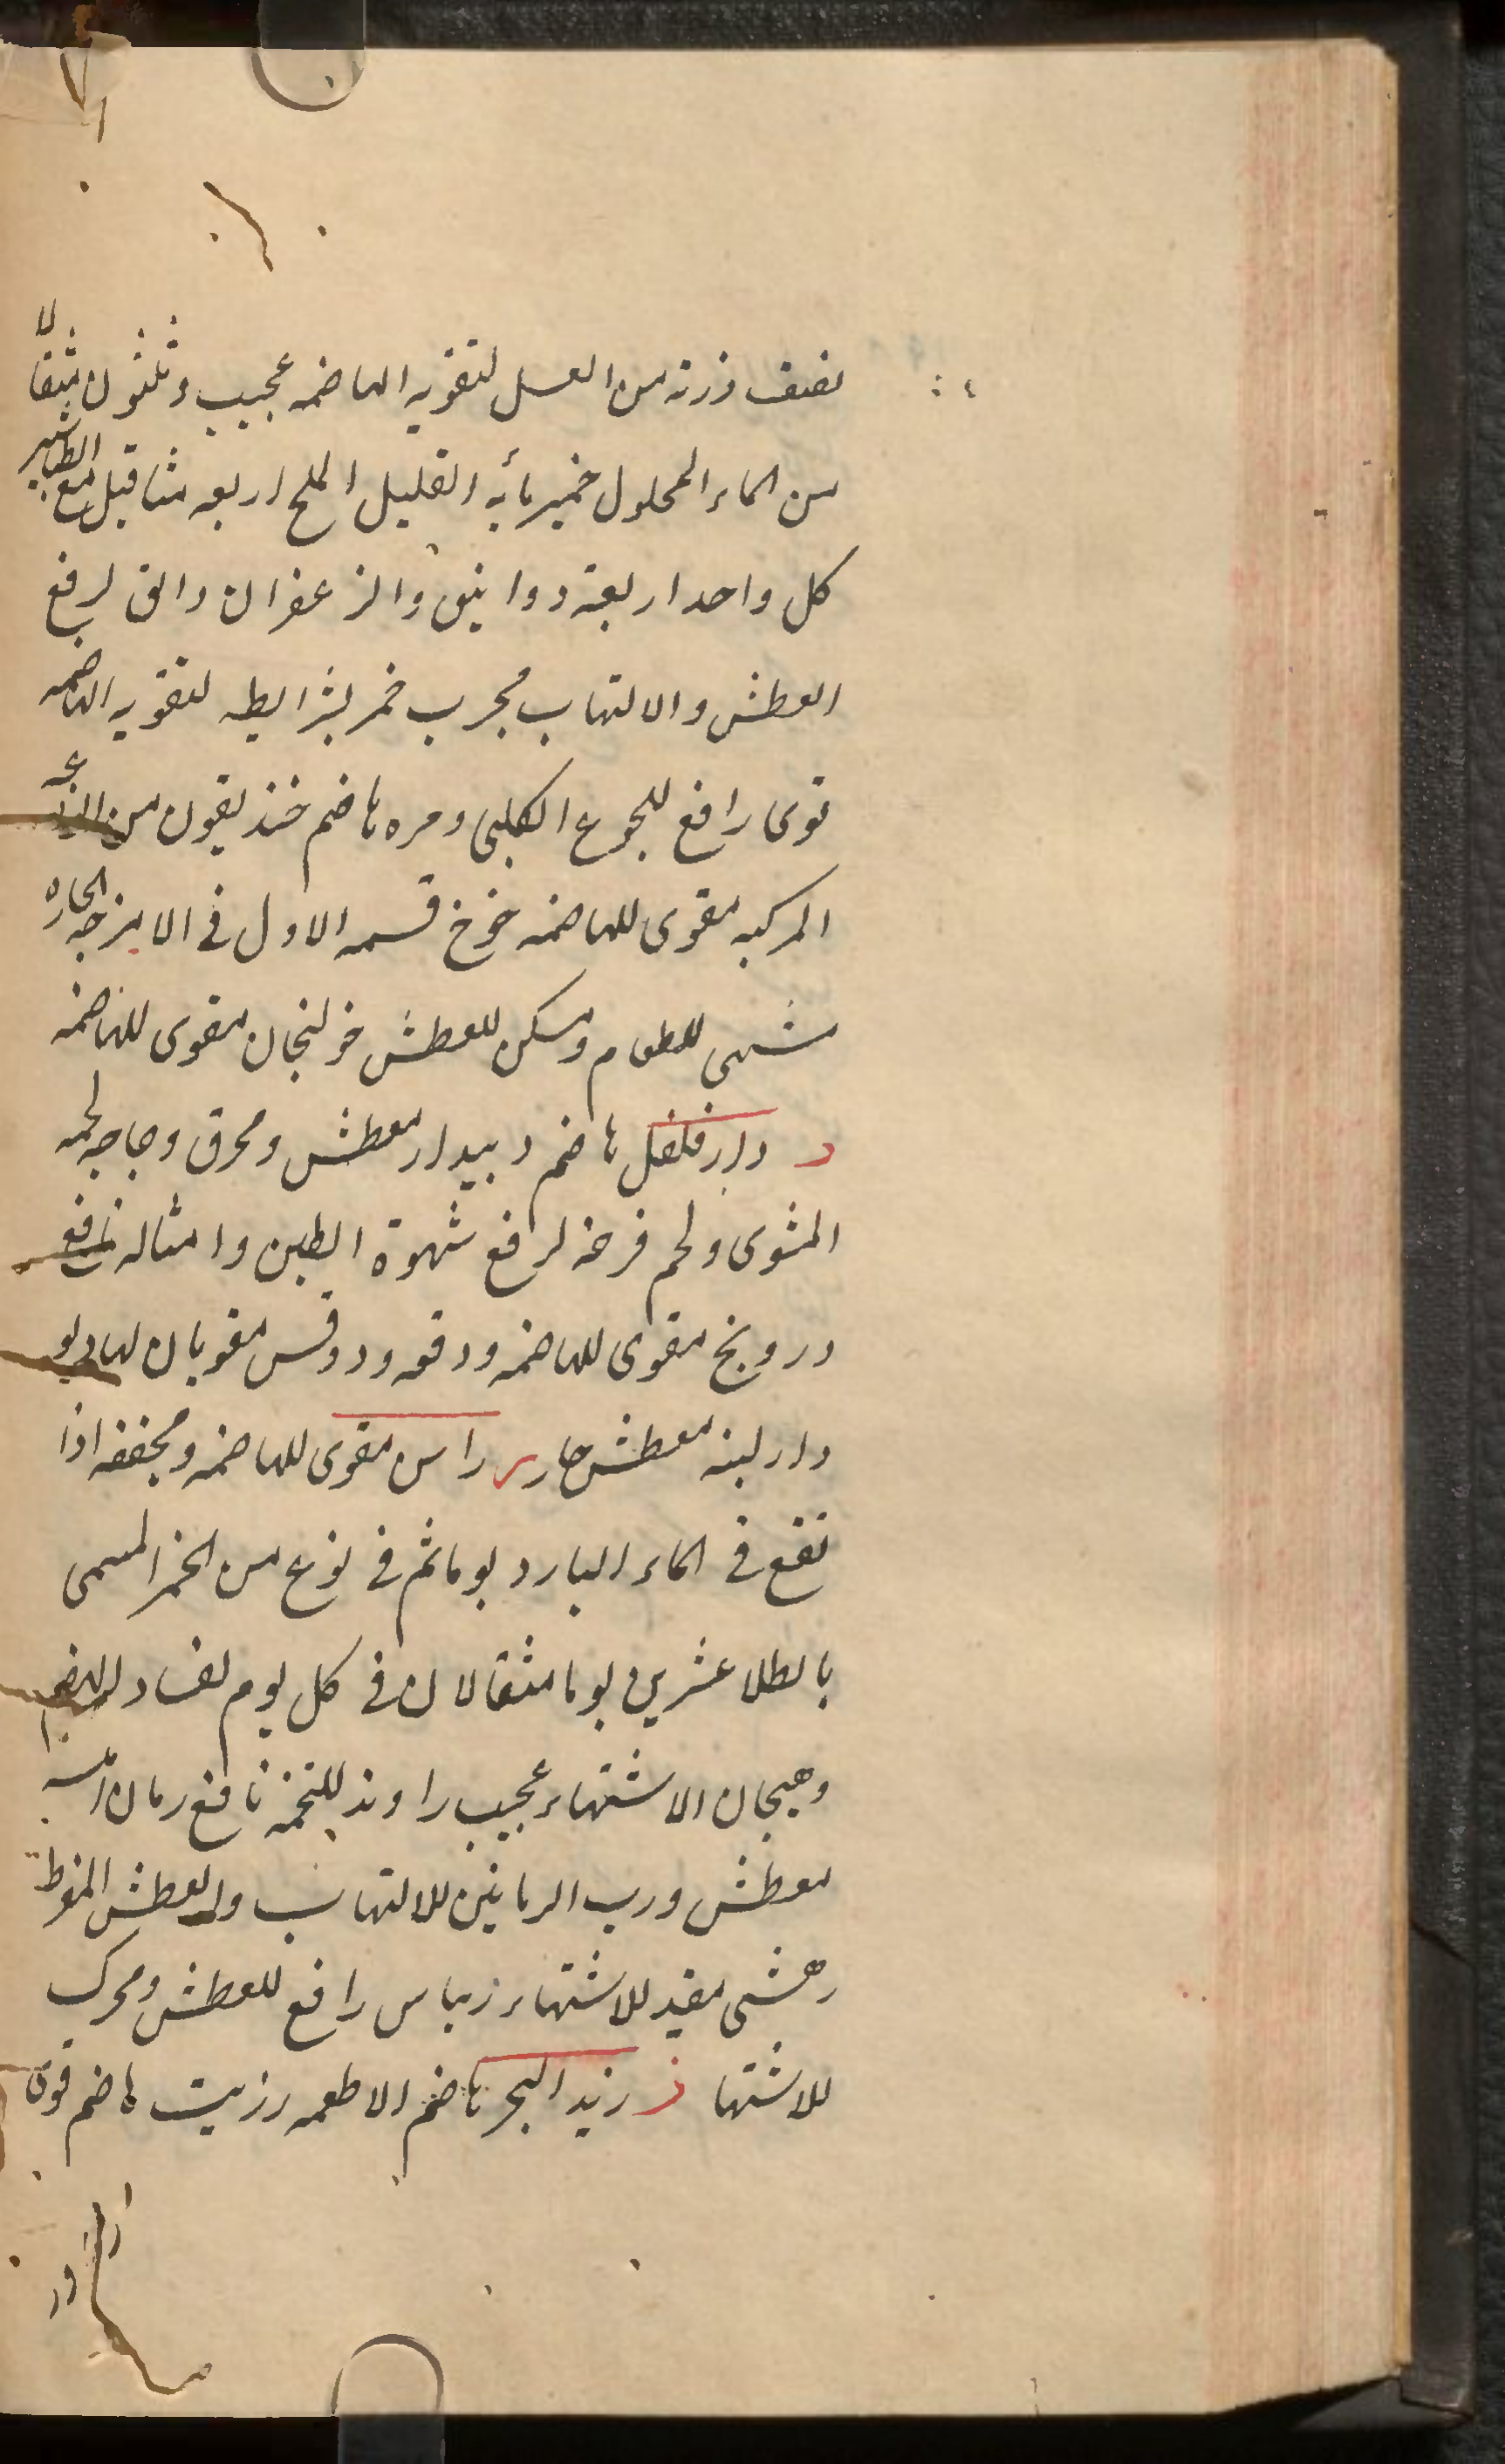 نصف وزنه من العسل لتقويه الهاضمه عجيب وثلثون مثقالا
من الماء المحلول خميرمأيه القليل الملح اربعه مثاقيل مع الطباشير
كل واحد اربعة دوانيق والزعفران دانق لرفع
العطش والالتهاب مجرب خمر بشرايطه لتقويه الهاضمه
قوى رافع للجوع الكلبى ومره هاضم خنديقون من
المركبه مقوى للهاضمه خوخ قسمه الاول فى الامزجه الحاره
مشهى للطعام ومسكن للعطش خولنجان مقوى للهاضمه
د دارفلفل هاضم دبيدار معطش ومحرق دجاجه لحمه
المشوى ولحم فرخه لرفع شهوة الطين وامثاله نافع
درونج مقوى للهاضمه ودقه ودوقس مقويان لها
دار لبنه معطش حار ر راسن مقوى للهاضمه ومجففه اذا
نقع فى الماء البارد يوما ثم فى نوع من الخمر المسمى
بالطلا عشرين يوما مثقالان فى كل يوم لفساد الهضم
وهيجان الاشتهاء عجيب راوند للتخمه نافع رمان
معطش ورب الرمانين للالتهاب والعطش المفرط
رهشى مفيد للاشتهاء ريباس رافع للعطش ومحرك
للاشتها ز زبد البحر هاضم الاطعمه زيت هاضم قوى